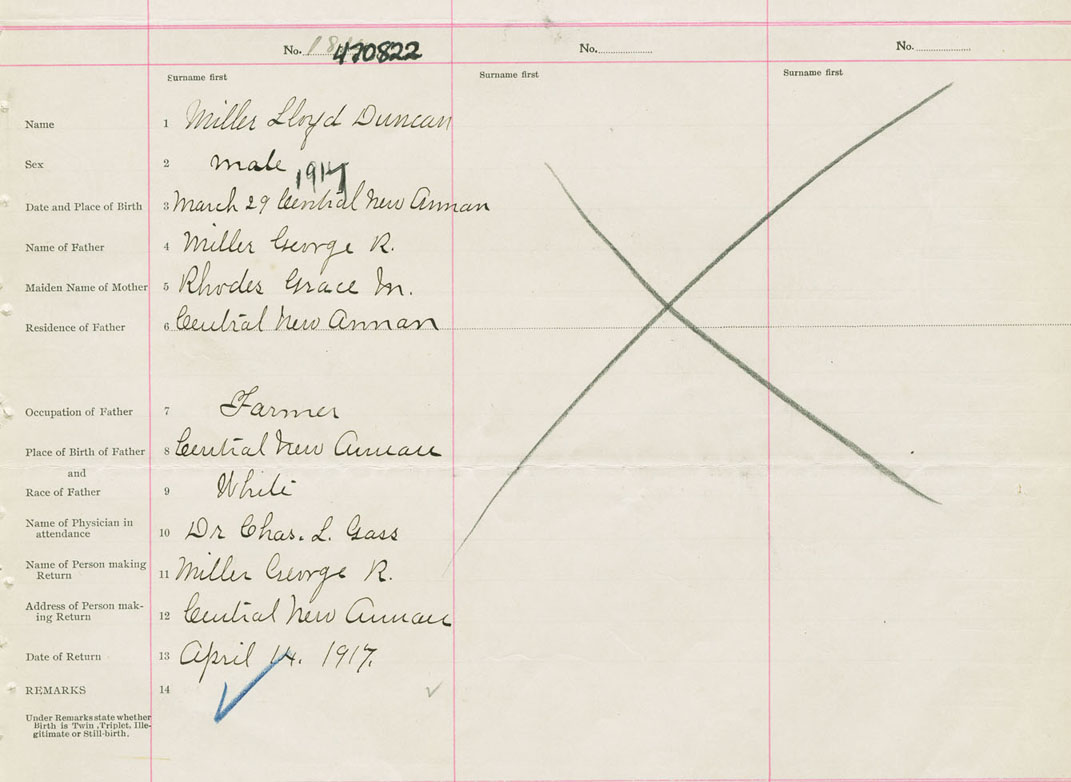 No. 470822 No. No.
Surname first Surname first Surname first
Name 1 Miller Lloyd Duncan
Sex 2 male
1917
Date and Place of Birth 3 March 29 Central New Annan
Name of Father 4 Miller George R.
Maiden Name of Mother 5 Rhodes Grace M.
Residence of Father 6 Central New Annan
Occupation of Father 7 Farmer
Place of Birth of Father 8 Central New Annan
and
Race of Father 9 White
Name of Physician in
attendance 10 Dr Chas. L. Gass
Name of Person making
Return 11 Miller George R.
Address of Person mak-
ing Return 12 Central New Annan
Date of Return 13 April 14. 1917.
REMARKS 14
Under Remarks state whether
Birth is Twin, Triplet, Ille-
gitimate or Still-birth.